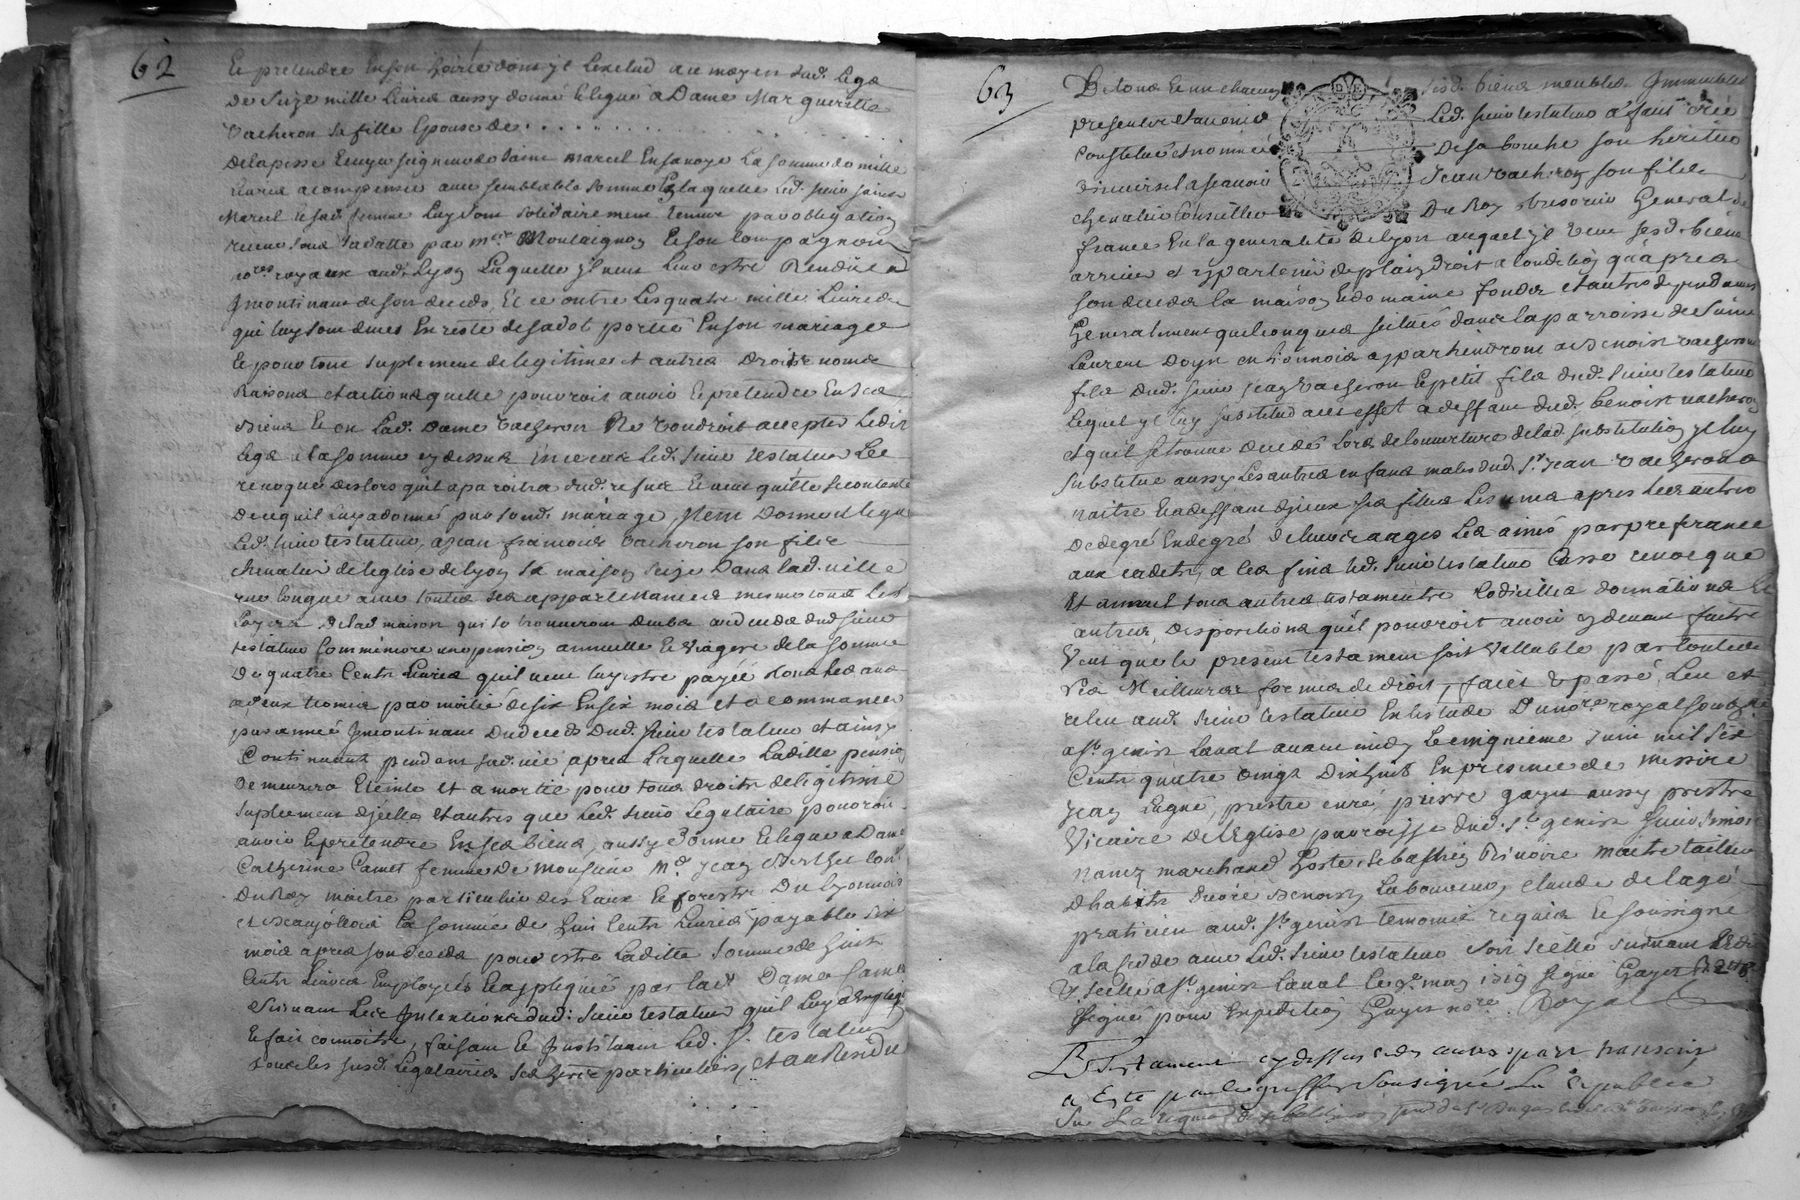 62
Et pretendre En son hoirie dont yl Lexclud au moyen dud. Legz
De Seize mille Livres aussy donné Elegué a Dame Margueritte
Vacheron sa fille Epouse de . . . . . . . . . . .
Delapesse Ecuyer seigneur de Saint Marcel En Savoye La somme de mille
Livres acompenser avec semblable somme Ez laquelle Led. sieur saint
Marcel Et sad. femme Luy sont solidairement tenus par obligation
receue sous sa datte par me Montaignon Et son Compagnon
nores royaux aud. Lyon Laquelle yl veut Leur estre Rendüe a
Jncontinant de son deceds, Et ce outre Les quatre mille Livres
qui luy sont dües En reste de sa dot portée En son mariage
Et pour tout suplement de legitime et autres Droits noms
Raisons et actions quelle pouvroit avoir Et pretendre En ses
biens Et ou Lad. Dame Vacheron Ne Voudroit accepter Ledit
Legz et la somme cy dessus En ce cas Led. sieur testateur Les
revoque des lors quil aparoitra dud. refus Et veut quelle se contente
De ce quil luy a donné par sond. mariage, Jtem Donne et legue
Led. sieur testateur, a Jean francois Vacheron son fils
chevalier de leglise de Lyon sa maison size Dans lad. ville
rue longue avec toutes ses appartenances mesme tous Les
Loyers de lad. maison qui se trouveront deubs au deceds dud sieur
testateur Comm' encore une pension annuelle Et Viagere de la somme
De quatre Cents Livres quil veut luy estre payée tous les ans
a deux termes par moitié de six En six mois et a commancer
par année Jncontinant Du deceds Dud. sieur testateur et ainsy
Continuant pendant sad. vie apres Laquelle Laditte pension
Demeurera Eteinte et amortie pour tous droits de legitime
suplement dycelle et autres que Led. sieur Legataire pouvroit
avoir Et pretendre En ses biens, aussy donne Elegue a Dame
Catherine Camet femme De Monsieur Me. Jean Berthet Conr.
Du Roy maitre particulier des Eaux Et forests Du lyonnois
et Beaujollois La somme de huit Cents Livres payable six
mois apres son deceds pour estre Laditte somme de huit
Cents Livres Employée Et appliquée par lad. Dame Camet
suivant Les Jntentions dud. sieur testateur quil Luy a Expliqé
Et fait connoitre, faisant Et Jnstituant Led. S. testateur
tous les susd. Legataires ses heritiers particuliers, Et au Residu
63
De tous Et un chacuns sesd. biens meubles Jmmeubles
presents et avenir Led. sieur testateur a fait créé
Constitué et nommé De sa bouche son heritier
universel a scavoir Jean Vacheron son fils
chevalier Conseiller Du Roy tresorier General de
france En la generalité de Lyon auquel yl veut sesd. biens
arriver et appartenir de plain Droit a Condition qu'apres
son deceds la maison Et domaine fonds et autres dependances
Generalement quelconques scitués dans la parroisse de Saint
Laurent Doyn en lionnois appartiendront a Benoist Vacheron
fils Dud. sieur Jean Vacheron Et petit fils dud. sieur testateur
Lequel yl luy substitue a cet effet a deffaut dud. Benoist vacheron
et quil se trouve decedé Lors de louverture de lad. substitution yl luy
substitue aussy Les autres enfans males dud. Sr. Jean Vacheron a
naitre Et a deffaut dyceux ses filles Les unes apres les autres
De degré En degré de leurs aages Les ainés par preferance
aux cadets, a ces fins led. sieur testateur Casse revoque
Et annul tous autres testaments Codicilles donnations Et
autres, Dispositions quil pouvroit avoir cy devant faites
Veut que le present testament soit Vallable par toutes
ses Meilleures formes de droit, faict & passé, Leu et
releu aud. sieur testateur En lestude Du nore royal soubzné
a St. genis Laval avant midy Le cinquieme Juin mil six
Cents quatre Vingt Dix huit En presence de messire
Jean Lugné, prestre curé, pierre gayet aussy prestre
Vicaire De lEglise parroisse dud. St. genis sieur Simon
Namy marchand hoste, Sebastien Benoire maitre tailleur
Dhabits André Benoist, Labouveno, Claude delage
praticien aud. St. genis temoins requis Et soussigné
a la cedde avec Led. sieur testateur soit scellé suivant LEdit
& scellé a St. genis Laval Le 9e. may 1719 signé Gayet
signé pour Expedition Gayet nore. Royal
Le Testament cy dessus
a Este par le greffier soussigné Lu Et publié